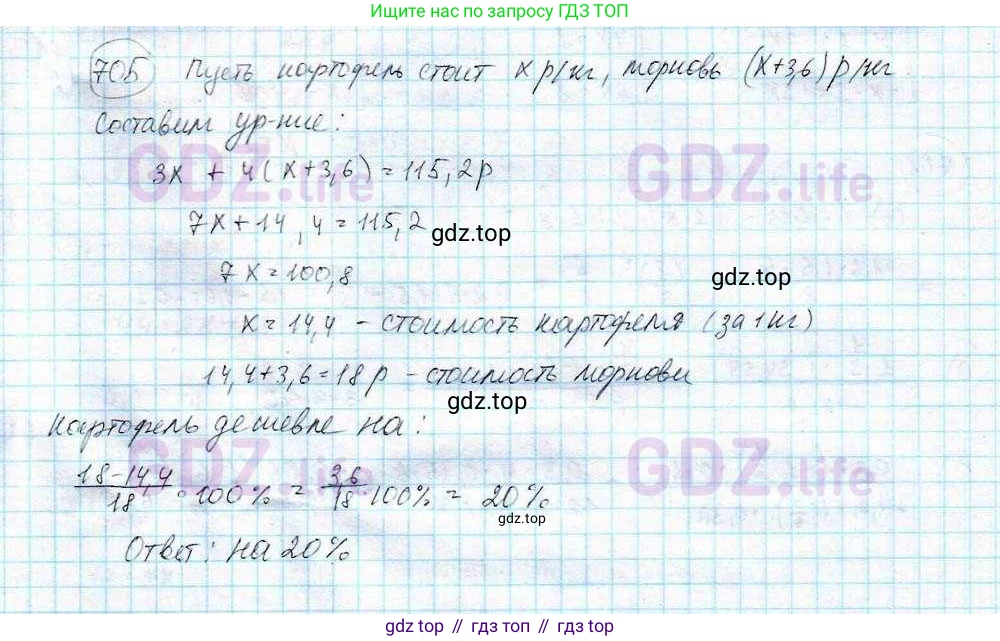 Ищите ответы по запросу ГДЗ ТОП
705 Пусть картофель стоит x р/кг, морковь (x+3,6) р/кг
Составим ур-ние:
GDZ.life GDZ.life
3x + 4(x+3,6) = 115,2р
7x+14,4=115,2
gdz.top
7x=100,8
gdz.top
x=14,4 – стоимость картофеля (за 1кг)
14,4+3,6=18 р – стоимость моркови
gdz.top
Картофель дешевле на:
GDZ.life GDZ.life
18-14,4/18 · 100% = 3,6/18 · 100% = 20%
gdz.top
Ответ: на 20%
gdz top // гдз топ // gdz top